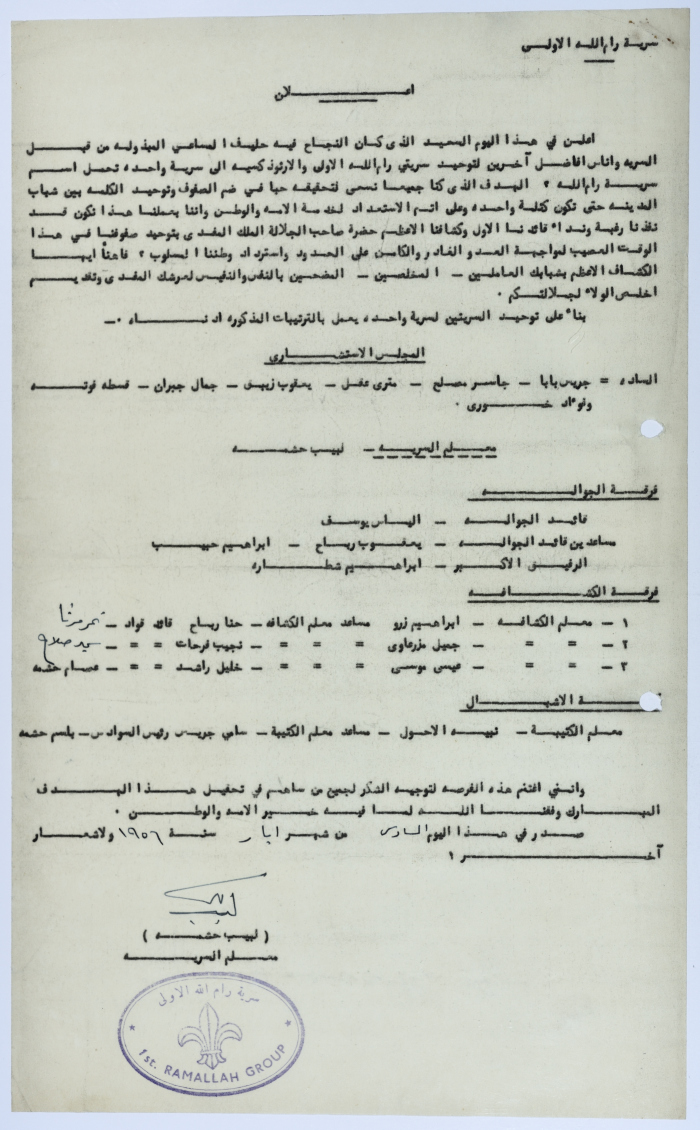 سرية رام الله الاولى
اعلان
اعلن في هذا اليوم السعيد الذي كان النجاح فيه حليف المساعي المبذوله من قبل
السريه واناس افاضل آخرين لتوحيد سريتي رام الله الاولى والارثوذكسيه الى سرية واحده تحمل اسم
سرية رام الله ٢ الهدف الذي كنا جميعا نسعى لتحقيقه حبا في ضم الصفوف وتوحيد الكلمه بين شباب
المدينه حتى تكون كتلة واحده وعلى اتم الاستعداد لخدمة الامه والوطن واننا بعملنا هذا نكون قد
نفذنا رغبة ونداء قائدنا الاول وكشافنا الاعظم حضرة صاحب الجلالة الملك المفدى بتوحيد صفوفنا في هذا
الوقت العصيب لمواجهة العدو الغادر والكامن على الحدود واسترداد وطننا المسلوب ٢ فاهنأ ايها
الكشاف الاعظم بشبابك العاملين - المخلصين - المضحين بالنفس والنفيس لعرشك المفدى وتقديم
اخلص الولاء لجلالتكم ٠
بناء على توحيد السريتين لسرية واحده يعمل بالترتيبات المذكوره ادناه ٠-
المجلس الاستشاري
الساده = جريس بابا - جاسر مصلح - متري عقل - يعقوب زبيق - جمال جبران - قسطه فوته
وفوءاد خوري ٠
معلم السريه - لبيب حشمه
فرقة الجواله
قائد الجواله - الياس يوسف
مساعدين قائد الجواله - يعقوب رباح - ابراهيم حبيب
الرفيق الاكبر - ابراهيم شطاره
فرقة الكشافه
١ - معلم الكشافه - ابراهيم زرو مساعد معلم الكشافه - حنا رباح قائد قواد -
٢ - = = - جميل مزرعاوي = = = - نجيب فرحات = = - سعيد صلاح
٣ - = = - عيسى موسى = = = - خليل راشد = = - عصام حشمه
ة الاشبال
معلم الكتيبة - نبيه الاحول - مساعد معلم الكتيبة - سامي جريس رئيس السوادس - باسم حشمه
وانني اغتنم هذه الفرصه لتوجيه الشكر لجميع من ساهم في تحقيق هذا الهدف
المبارك وفقنا الله لما فيه خير الامه والوطن ٠
صدر في هذا اليوم السادس من شهر ايار سنة ١٩٥٦ ولاشعار
آخر ١
لبيب
( لبيب حشمه )
معلم السريه
سرية رام الله الاولى
1st. RAMALLAH GROUP